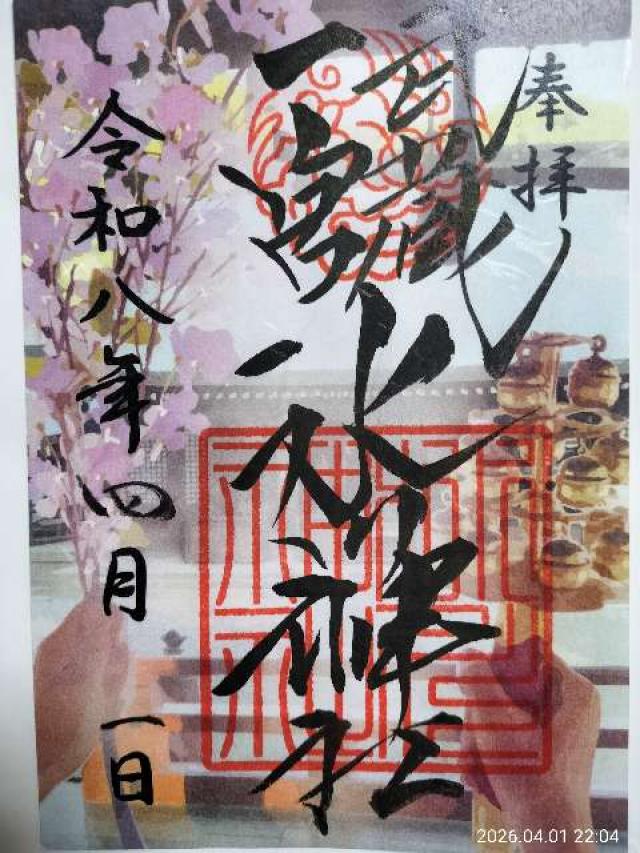 奉拝
武蔵
一宮
氷川神社
令和八年四月一日
2026.04.01 22:04